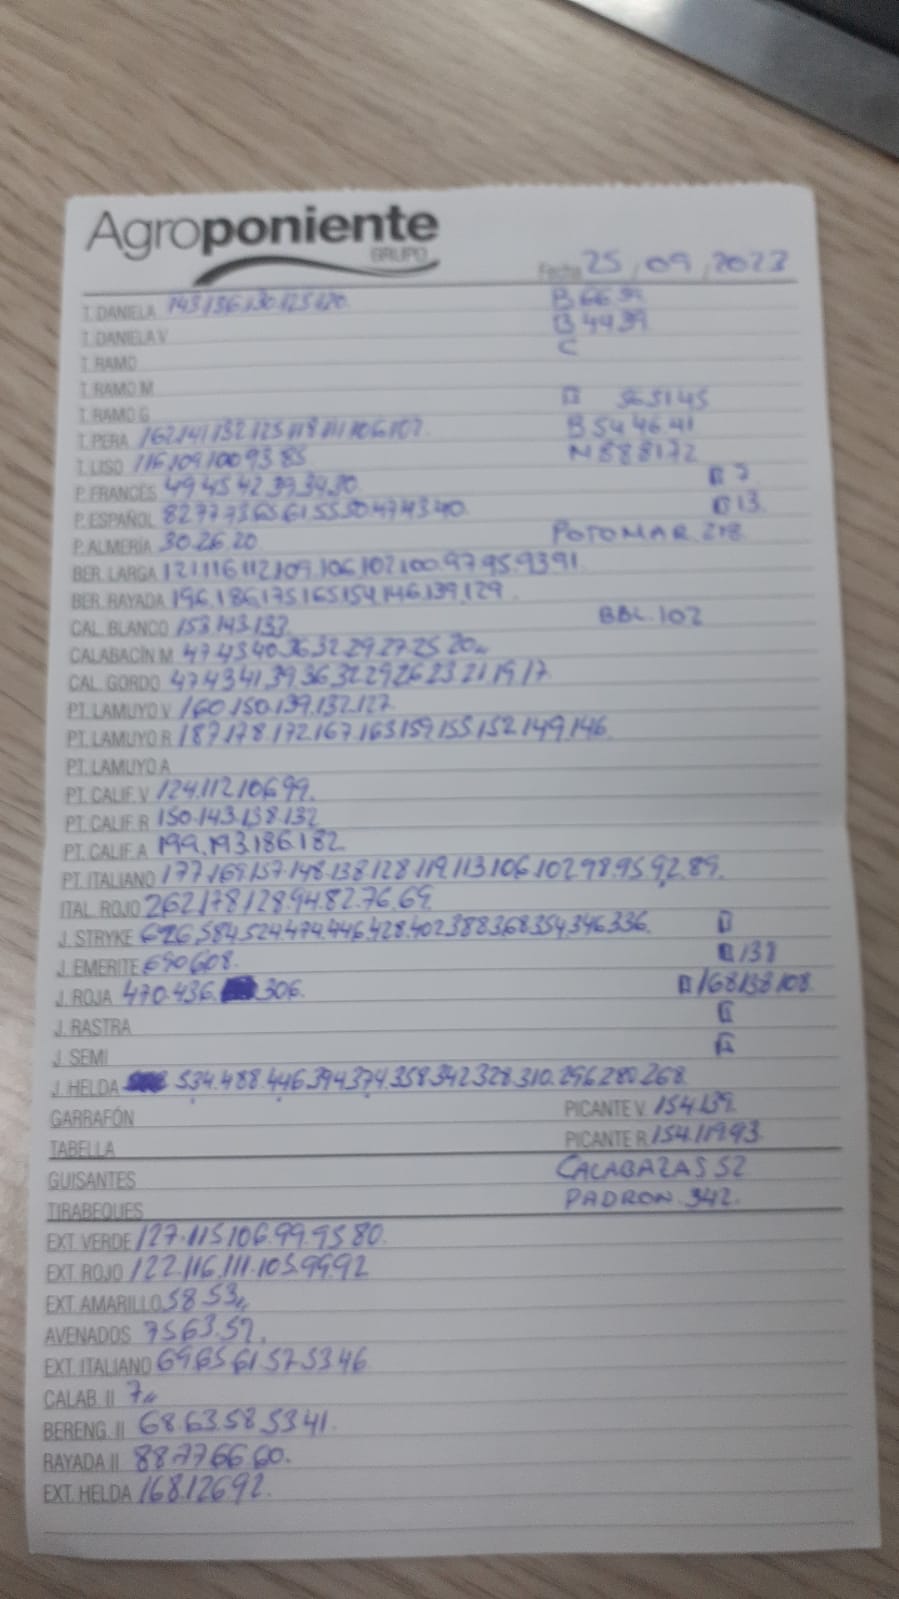 Agroponiente
GRUPO
Fecha 25,09,2023
T. DANIELA 143.136.130.125.120. B 66.59
T. DANIELA V B 44.39
T. RAMO C
T. RAMO M
T. RAMO G B 56 51 45
T. PERA 162.141.132.125.118.111.106.102. B 54.46.41
T. LISO 116.109.100.93.85 N 88 81 72
P. FRANCÉS 49 45 42.39.34.30 B 7
P. ESPAÑOL 82 77 73 65 61 55.50.47.43.40. B 13.
P. ALMERÍA 30.26.20 POTOMAR. 218
BER. LARGA 121.116.112.109.106.102.100.97.95.93.91
BER. RAYADA 196.186.175.165.154.146.139.129.
CAL. BLANCO 153.143.132. BBL. 102
CALABACÍN M 47.43.40.36.32.29.27.25.20
CAL. GORDO 47.43.41.39.36.32.29.26.23.21.19.17
PT. LAMUYO V 160.150.139.132.127.
PT. LAMUYO R 187.178.172.167.163.159.155.152.149.146.
PT. LAMUYO A
PT. CALIF. V 124.112.106.99.
PT. CALIF. R 150.143.138.132
PT. CALIF. A 199.193.186.182
PT. ITALIANO 177.169.157.148.138.128.119.113.106.102.98.95.92.89.
ITAL. ROJO 262.178.128.94.82.76.69.
J. STRYKE 626.584.524.474.446.428.402.388.368.354.346.336.
J. EMERITE 690.608. B 138
J. ROJA 470.436. 306. B 168.138.108.
J. RASTRA
J. SEMI
J. HELDA 534.488.446.394.374.358.342.328.310.296.280.268.
GARRAFÓN PICANTE V. 154.139.
TABELLA PICANTE R. 154.119.93.
GUISANTES CALABAZAS 52
TIRABEQUES PADRON. 342.
EXT. VERDE 127.115.106.99.95 80.
EXT. ROJO 122.116.111.105.99.92
EXT. AMARILLO 58 53
AVENADOS 75 63.52.
EXT. ITALIANO 69 65 61 57 53 46
CALAB. II 7
BERENG. II 68.63.58.53 41.
RAYADA II 88.77 66 60.
EXT. HELDA 168.126 92.